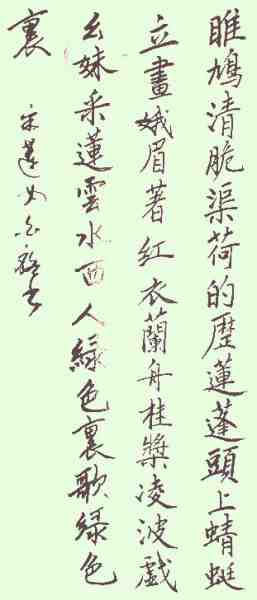 雎鳩清脆渠荷的歷蓮蓬頭上蜻蜓
立畫娥眉著紅衣蘭舟桂槳凌波戲
幺妹采蓮雲水西人綠色裏歌綠色
裏
蓮女
書